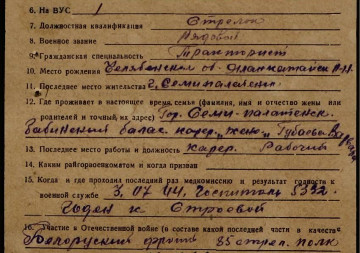 6. На ВУС 1
7. Должностная квалификация Стрелок
8. Военное звание Рядовой
9. Гражданская специальность Тракторист
10. Место рождения Челябинской об.
11. Последнее место жительства г. Семипалатинск
12. Где проживает в настоящее время семья (фамилия, имя и отчество жены или
родителей и точный их адрес) Гор. Семи-палатенск.
13. Последнее место работы и должность Рабочий
14. Каким райгорвоенкоматом и когда призван
15. Когда и где проходил последний раз медкомиссию и результат годности к
военной службе 3. 07 44, Госпиталь 5392.
Годен к Строевой
16. Участие в Отечественной войне (в составе какой последней части в качестве
Белоруский фронт 85 стрел. полк